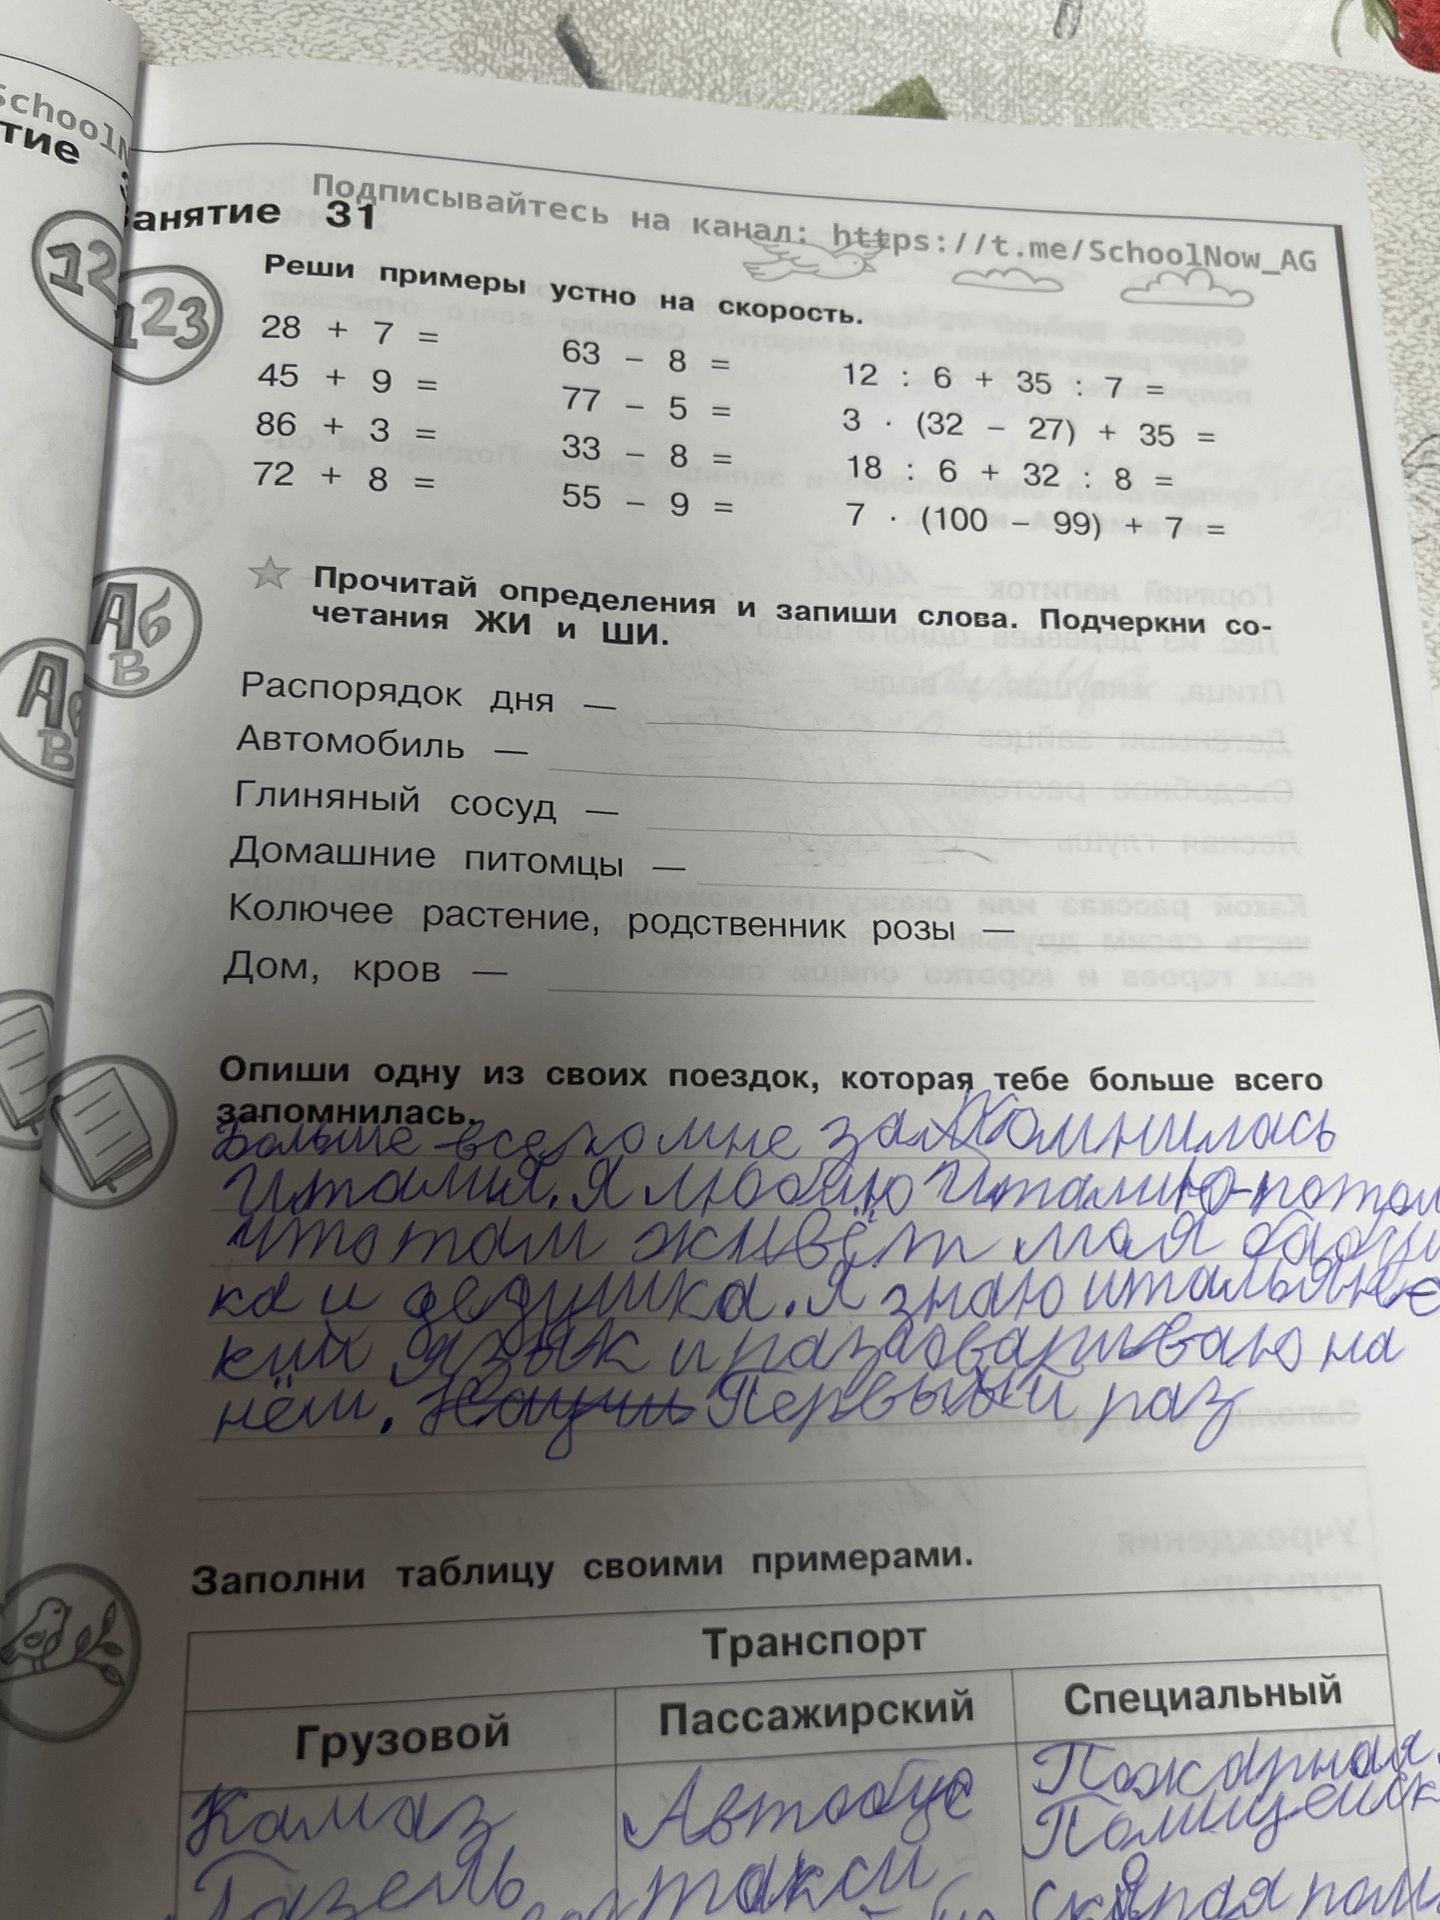 SchoolN
тие
Подписывайтесь на канал: https://t.me/SchoolNow_AG
анятие 31
12
123
Реши примеры устно на скорость.
28 + 7 =
45 + 9 =
86 + 3 =
72 + 8 =
63 – 8 =
77 – 5 =
33 – 8 =
55 – 9 =
12 : 6 + 35 : 7 =
3 · (32 – 27) + 35 =
18 : 6 + 32 : 8 =
7 · (100 – 99) + 7 =
Прочитай определения и запиши слова. Подчеркни со-
четания ЖИ и ШИ.
АБВ
Распорядок дня —
Автомобиль —
Глиняный сосуд —
Домашние питомцы —
Колючее растение, родственник розы —
Дом, кров —
Опиши одну из своих поездок, которая тебе больше всего
запомнилась.
Больше всего мне запомнилась
Италия. Я люблю Италию потом
что там живёт моя бабуш
ка и дедушка. Я знаю итальянс
кий язык и разговариваю на
нём. Первый раз
Заполни таблицу своими примерами.
Транспорт
Грузовой Пассажирский Специальный
Камаз Автобус Пожарная
Полицейск
Газель такси
скорая пом